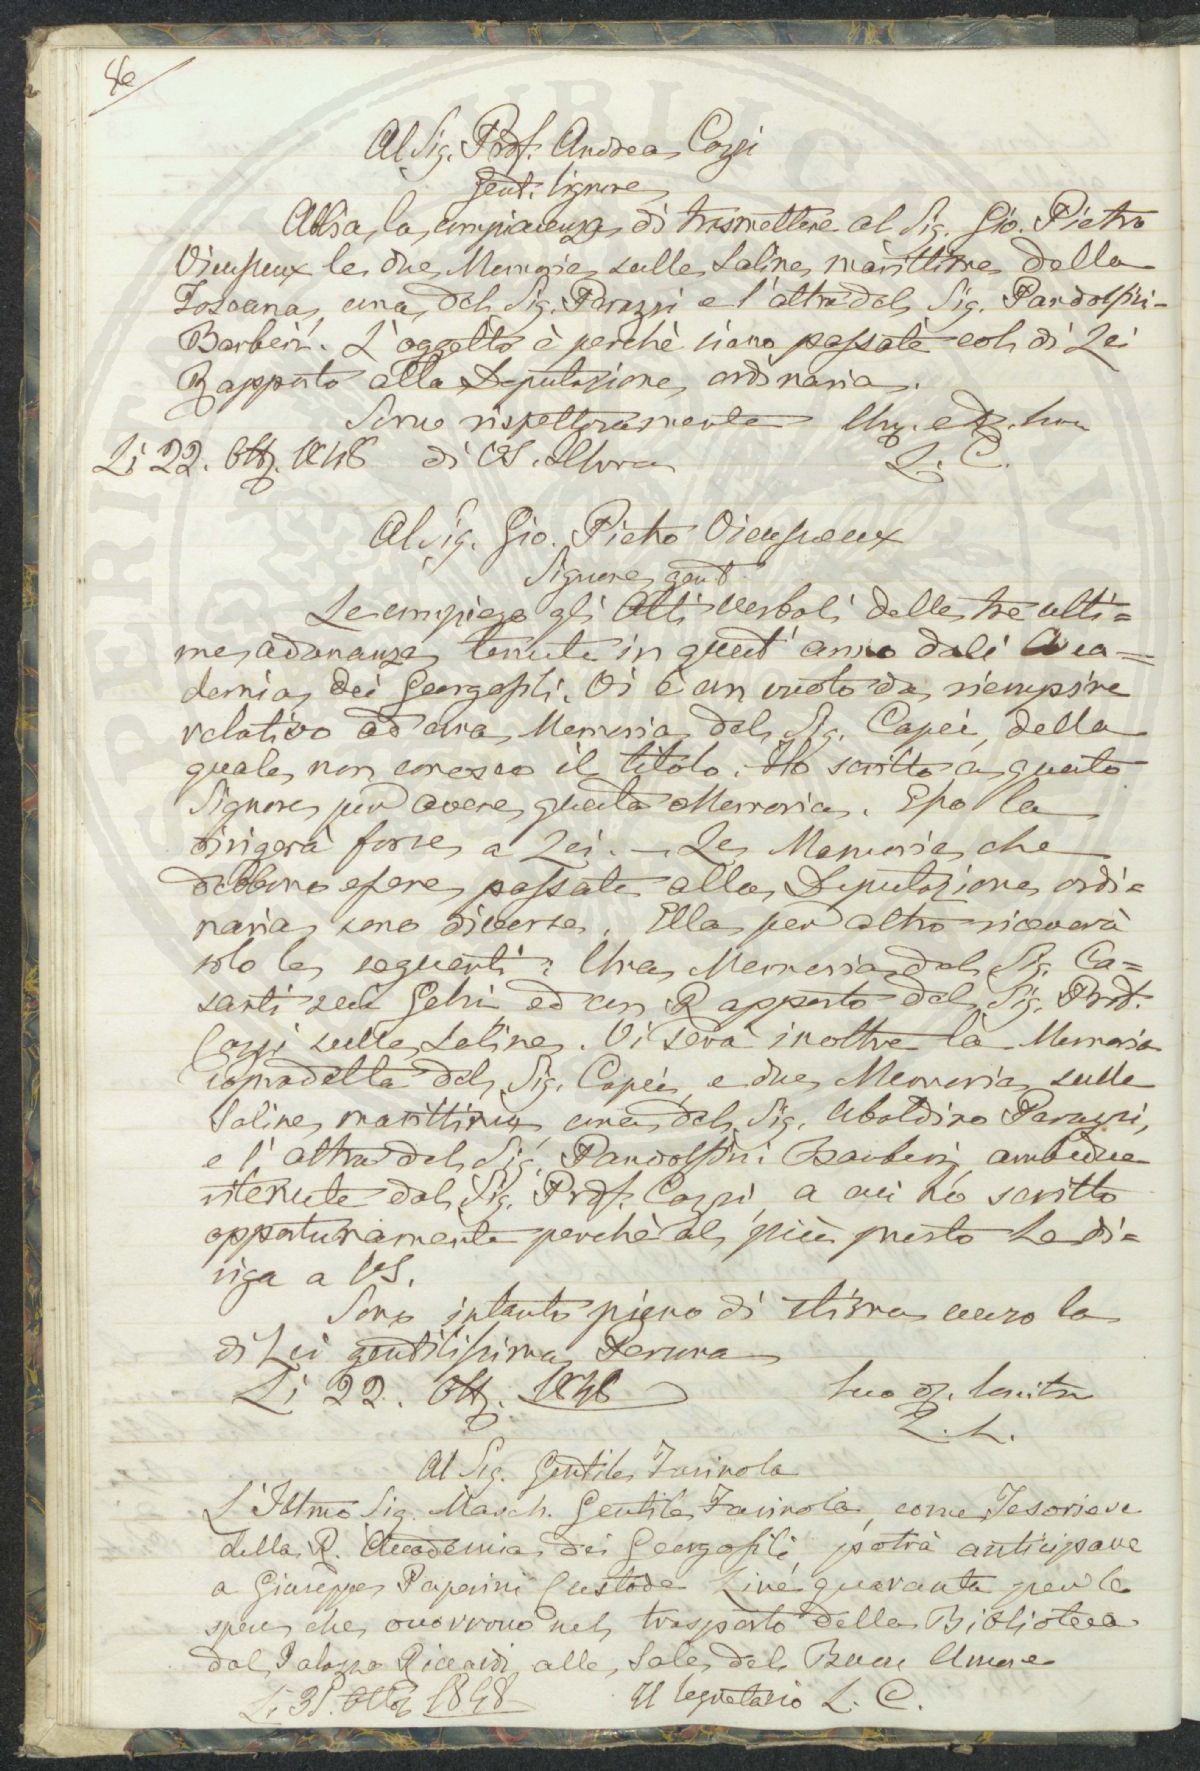 Al Sig. Prof. Andrea Cozzi
Gent. Signore
Abbia la compiacenza di trasmettere al Sig. Gio. Pietro
Vieusseux le due Memorie sulle Saline marittime della
Toscana, una del Sig. Parazzi e l'altra del Sig. Pandolfini-
Barberi. L'oggetto è perchè siano passate col di Lei
Rapporto alla Deputazione ordinaria.
Sono rispettosamente
Li 22. Ott. 1848 di VS. Illma
L. C.
Al Sig. Gio. Pietro Vieusseux
Signore gent.
Le compiego gli Atti verbali delle tre ulti=
me adunanze tenute in quest'anno dall' Acca=
demia dei Georgofili. Vi è un vuoto da riempire
relativo ad una Memoria del Sig. Capei, della
quale non conosco il titolo. Ho scritto a questo
Signore per avere questa Memoria. Esso la
dirigerà forse a Lei. — Le Memorie che
debbono essere passate alla Deputazione ordi=
naria sono diverse. Ella per altro riceverà
solo le seguenti: Una Memoria del Sig. Ca=
santi sui Gelsi ed un Rapporto del Sig. Prof.
Cozzi sulle Saline. Vi sarà inoltre la Memoria
sopradetta del Sig. Capei, e due Memorie sulle
Saline marittime, una del Sig. Ubaldino Parazzi,
e l'altra del Sig. Pandolfini Barberi, ambedue
ritenute dal Sig. Prof. Cozzi, a cui ho scritto
opportunamente perchè al più presto le di=
riga a VS.
Sono intanto pieno di stima verso la
di Lei gentilissima Persona
Li 22. Ott. 1848
Suo
L. C.
Al Sig. Gentile Farinola
L'Illmo Sig. March. Gentile Farinola, come Tesoriere
della R. Accademia dei Georgofili, potrà anticipare
a Giuseppe Paperini Custode Lire quaranta per le
spese che occorrono nel trasporto della Biblioteca
dal Palazzo Riccardi alle Sale del Buon Umore
Li 31. Ottob. 1848 Il Segretario L. C.